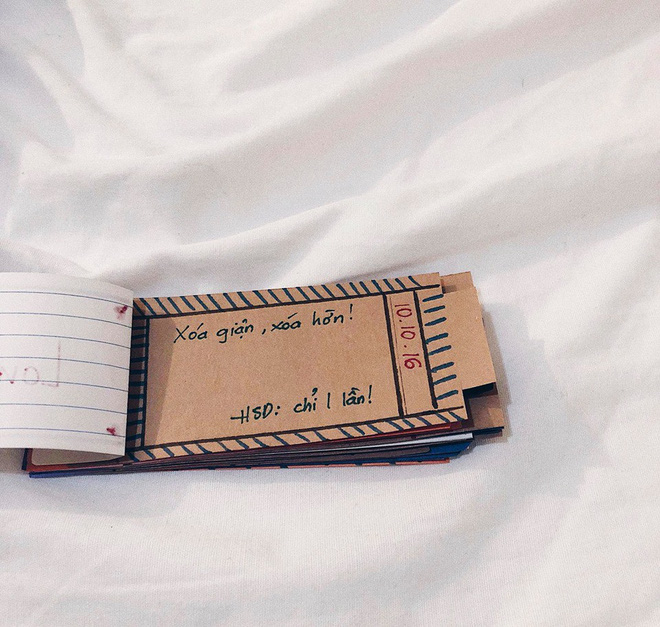 Xóa giận, xóa hờn!
HSD: chỉ 1 lần!
10.10.16